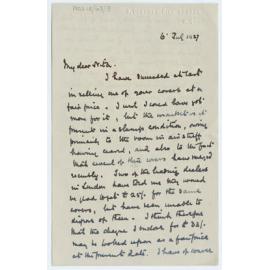 6 Jul 1927
My dear
I have succeeded at last
in selling one of your covers at a
fair price. I wish I could have got
more for it, but the market is at
present in a slump condition, owing
primarily to the boom in air stuff
having ceased, and also to the fact
that several of these covers have emerged
recently. Two of the leading dealers
in London have told me they would
be glad to get to 25% for the same
covers, but have been unable to
dispose of them. I think therefore
that the cheque I enclose for
may be looked upon as a fair price
at the present date. I have of course